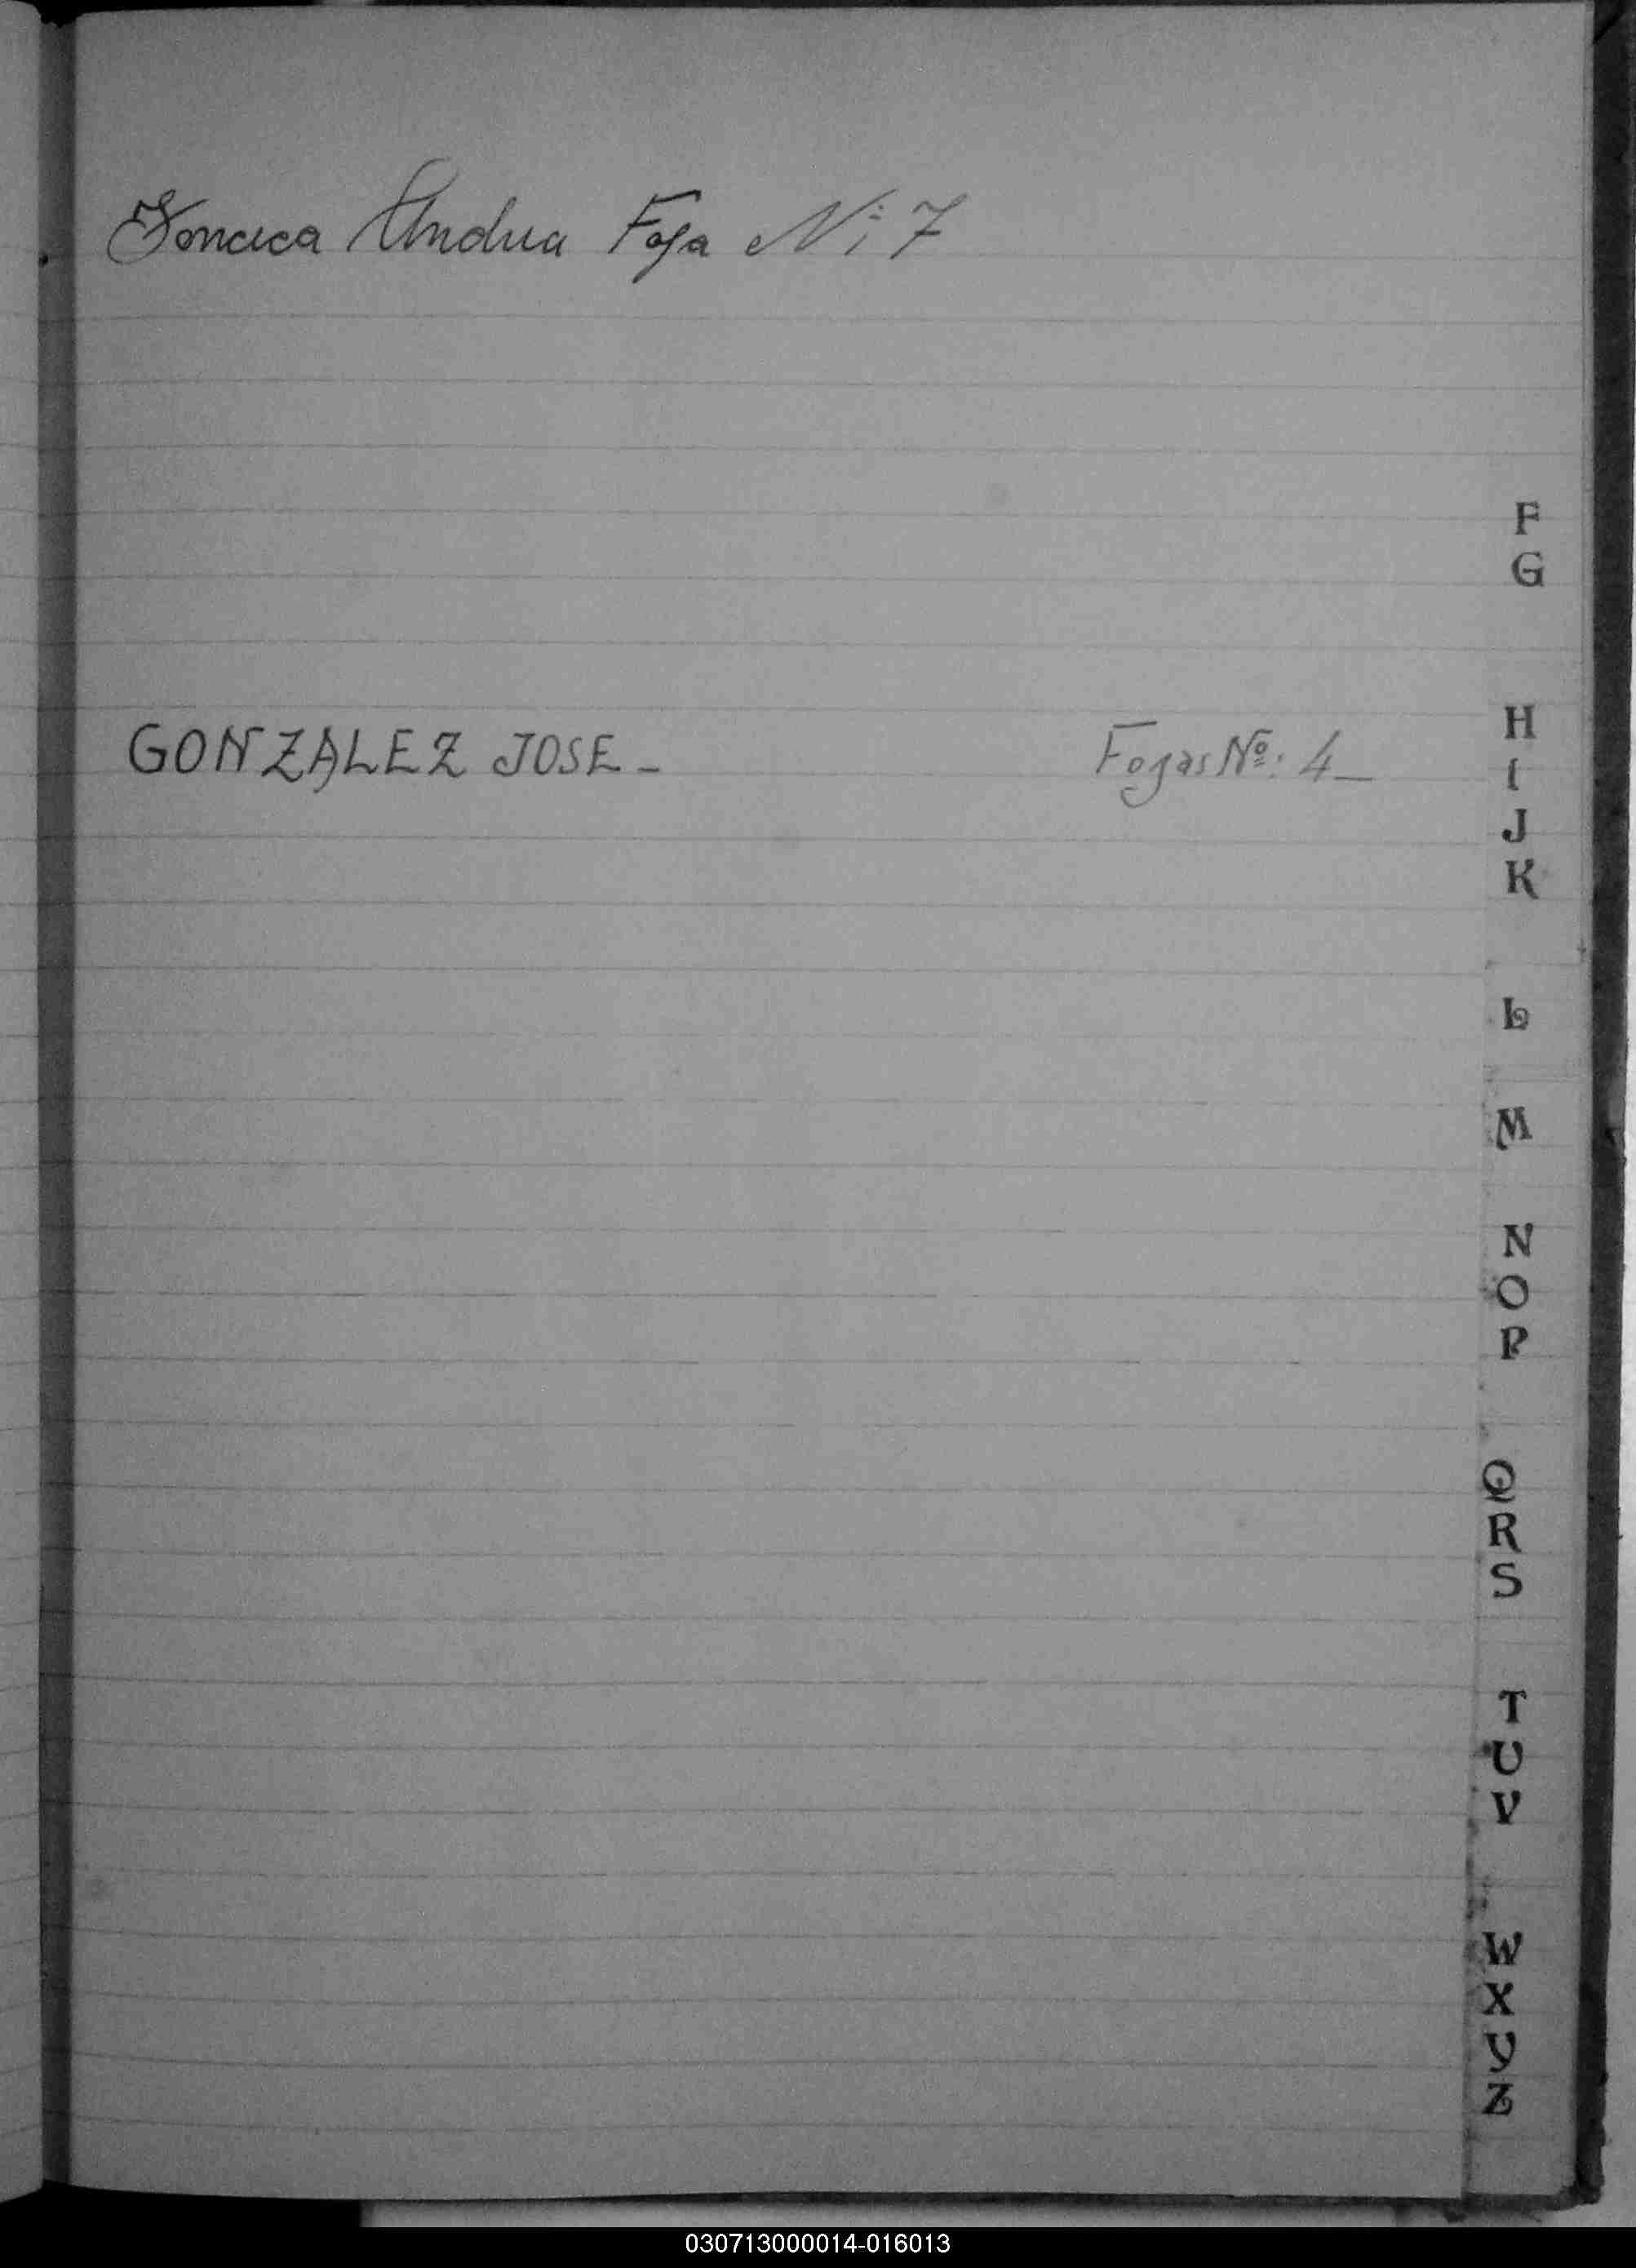 Fonceca Andrea Foja Nº 7
F
G
GONZALEZ JOSE - Fogas Nº: 4_
H
I
J
K
L
M
N
O
P
Q
R
S
T
U
V
W
X
Y
Z
030713000014-016013